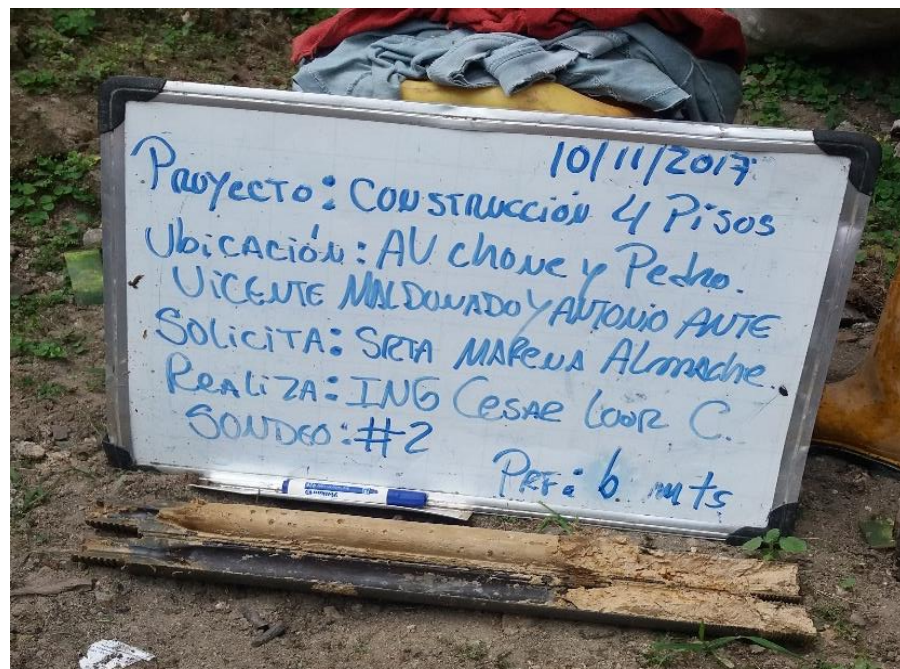 10/11/2017
Proyecto: Construcción 4 Pisos
Ubicación: AV chone y Pedro.
Vicente Maldonado y Antonio Ante
Solicita: SRTA Marena Almache.
Realiza: ING Cesar Loor C.
Sondeo: #2
Prf: 6. mts